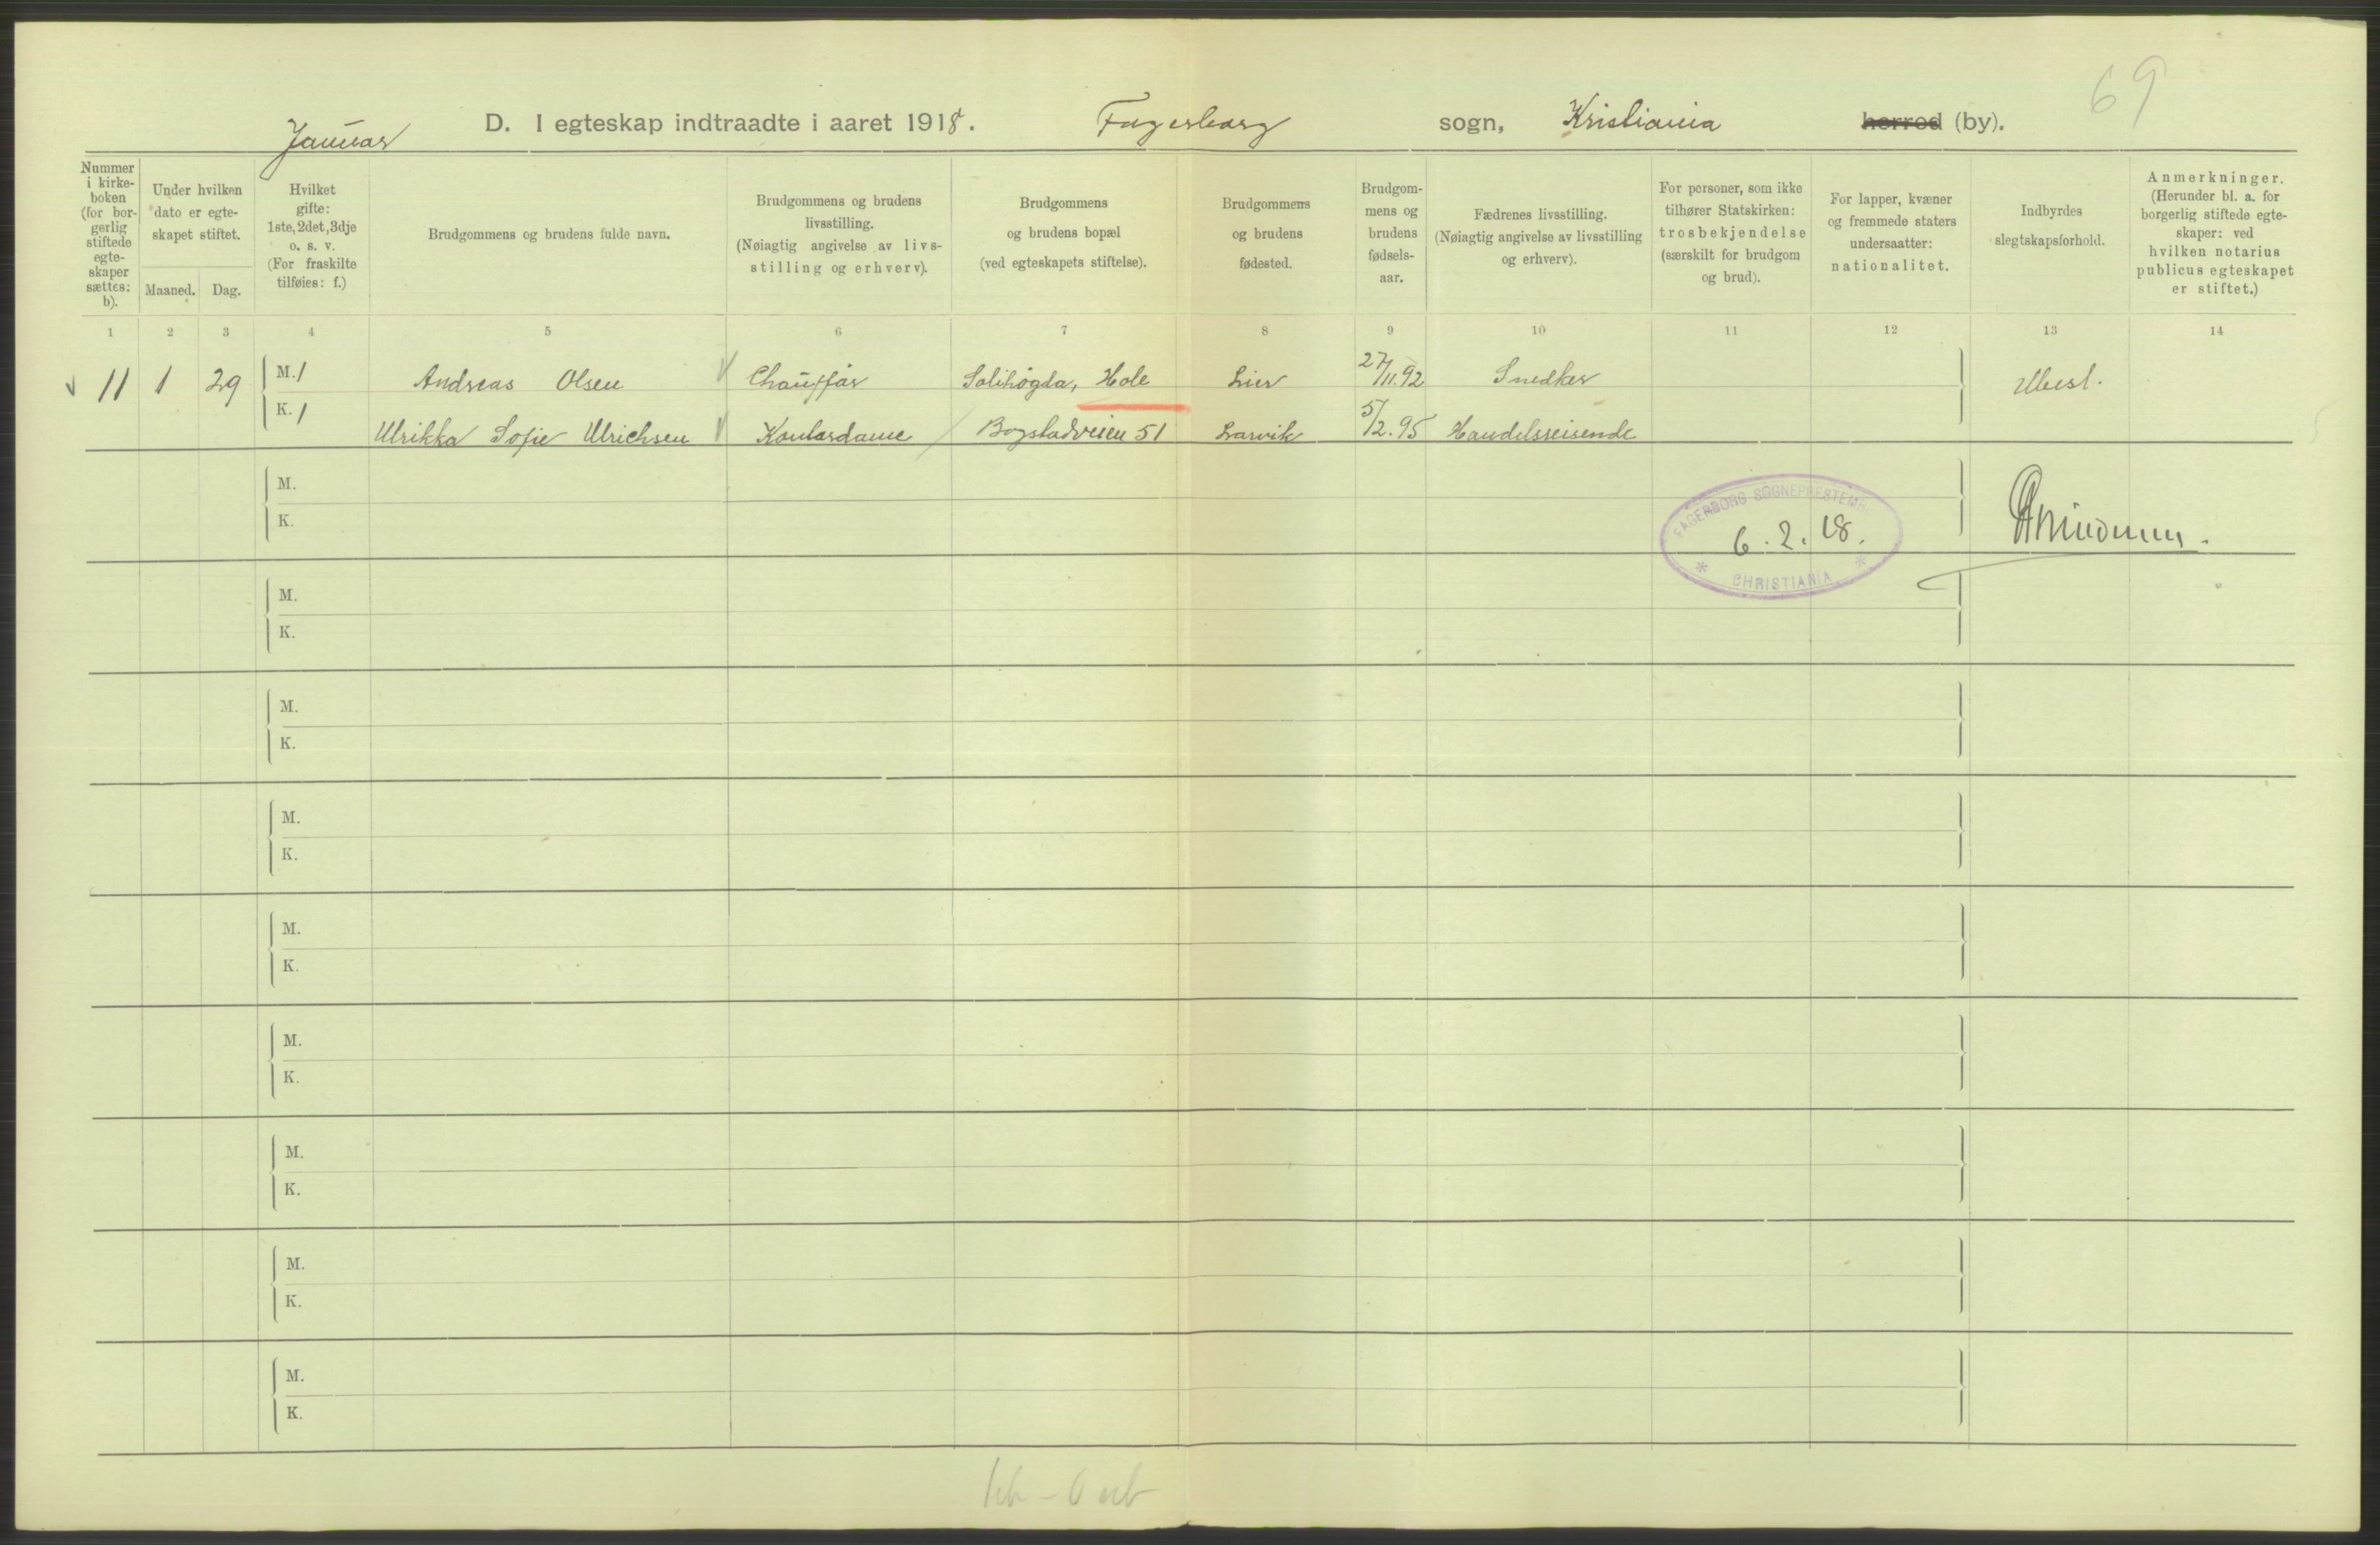 69
Januar D. I egteskap indtraadte i aaret 1918. Fagerborg sogn, Kristiania herred (by).
Nummer i kirke-boken (for bor-gerlig stiftede egte-skaper sættes: b).
Under hvilken dato er egte-skapet stiftet.
Maaned. Dag.
Hvilket gifte: 1ste, 2det, 3dje o. s. v. (For fraskilte tilføies: f.)
Brudgommens og brudens fulde navn.
Brudgommens og brudens livsstilling. (Nøiagtig angivelse av livs-stilling og erhverv).
Brudgommens og brudens bopæl (ved egteskapets stiftelse).
Brudgommens og brudens fødested.
Brudgom-mens og brudens fødsels-aar.
Fædrenes livsstilling. (Nøiagtig angivelse av livsstilling og erhverv).
For personer, som ikke tilhører Statskirken: trosbekjendelse (særskilt for brudgom og brud).
For lapper, kvæner og fremmede staters undersaatter: nationalitet.
Indbyrdes slegtskapsforhold.
Anmerkninger. (Herunder bl. a. for borgerlig stiftede egte-skaper: ved hvilken notarius publicus egteskapet er stiftet.)
1 2 3 4 5 6 7 8 9 10 11 12 13 14
11 1 29 M. 1 Andreas Olsen Chauffør Solihøgda, Hole Lier 27/11.92 Snedker Ubesl.
K. 1 Ulrikka Sofie Ulrichsen Kontordame Bogstadveien 51 Larvik 5/2.95 Handelsreisende
M.
K.
FAGERBORG SOGNEPRESTEMB.
6.2.18.
* CHRISTIANIA *
M.
K.
M.
K.
M.
K.
M.
K.
M.
K.
M.
K.
M.
K.
M.
K.